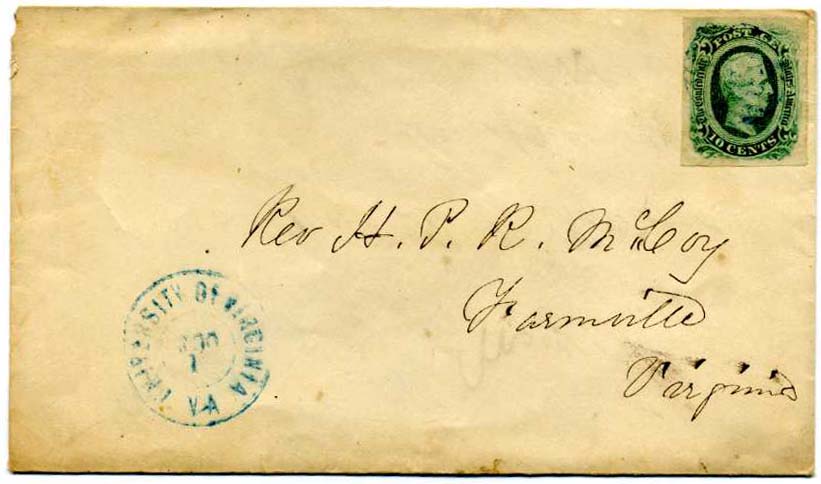 POSTAGE
The Confederate States America
10 CENTS
Rev H. P. R. McCoy
Farmville
Virginia
UNIVERSITY OF VIRGINIA
1
VA